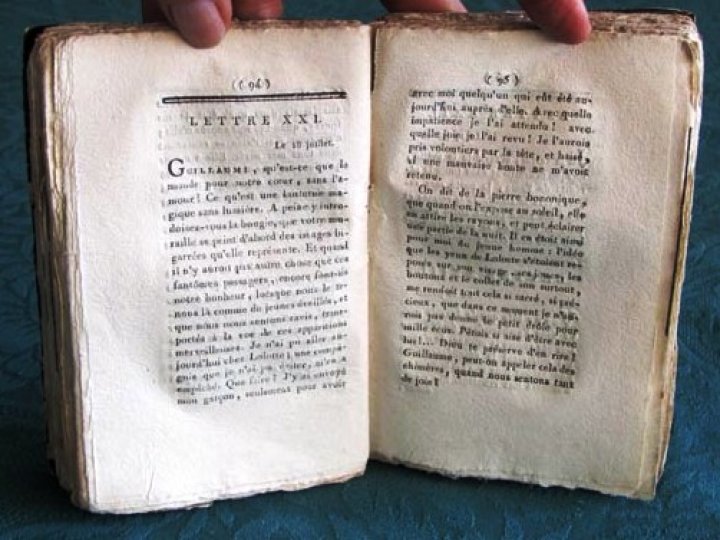 ( 94 )
LETTRE XXI.
Le 18 juillet.
GUILLAUME, qu'est-ce que le
monde pour notre cœur, sans l'a-
mour! Ce qu'est une lanterne ma-
gique sans lumière. A peine y intro-
duisez-vous la bougie, que votre mu-
raille se peint d'abord des images bi-
garrées qu'elle représente. Et quand
il n'y auroit pas autre chose que ces
fantômes passagers, encore font-ils
notre bonheur, lorsque nous le te-
nons là comme de jeunes éveillés, et
que nous nous sentons ravis, trans-
portés à la vue de ces apparitions
merveilleuses. Je n'ai pu aller au-
jourd'hui chez Lolotte; une compa-
gnie que je n'ai pu éviter, m'en a
empêché. Que faire? J'y ai envoyé
mon garçon, seulement pour avoir
( 95 )
avec moi quelqu'un qui eût été au-
jourd'hui auprès d'elle. Avec quelle
impatience je l'ai attendu! avec
quelle joie je l'ai revu! Je l'aurois
pris volontiers par la tête, et baisé,
si une mauvaise honte ne m'avoit
retenu.
On dit de la pierre bononique,
que quand on l'expose au soleil, elle
en attire les rayons, et peut éclairer
une partie de la nuit. Il en étoit ainsi
pour moi du jeune homme: l'idée
que les yeux de Lolotte s'étoient re-
posés sur son visage, ses joues, les
boutons et le collet de son surtout,
me rendoit tout cela si sacré, si pré-
cieux, que dans ce moment je n'au-
rois pas donné le petit drôle pour
mille écus. J'étois si aise d'être avec
lui!... Dieu te préserve d'en rire!
Guillaume, peut-on appeler cela des
chimères, quand nous sentons tant
de joie!